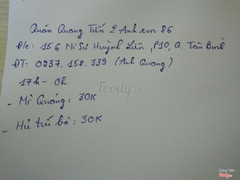 Quán Quang Tiến 2 Anh em 86
Đ/c: 156 Ni Sư Huỳnh Liên, P10, Q. Tân Bình
ĐT: 0937.158.339 (Anh Quang)
17h - 3h
Foody
- Mì Quảng: 30K
- Hủ tiếu bò: 30K